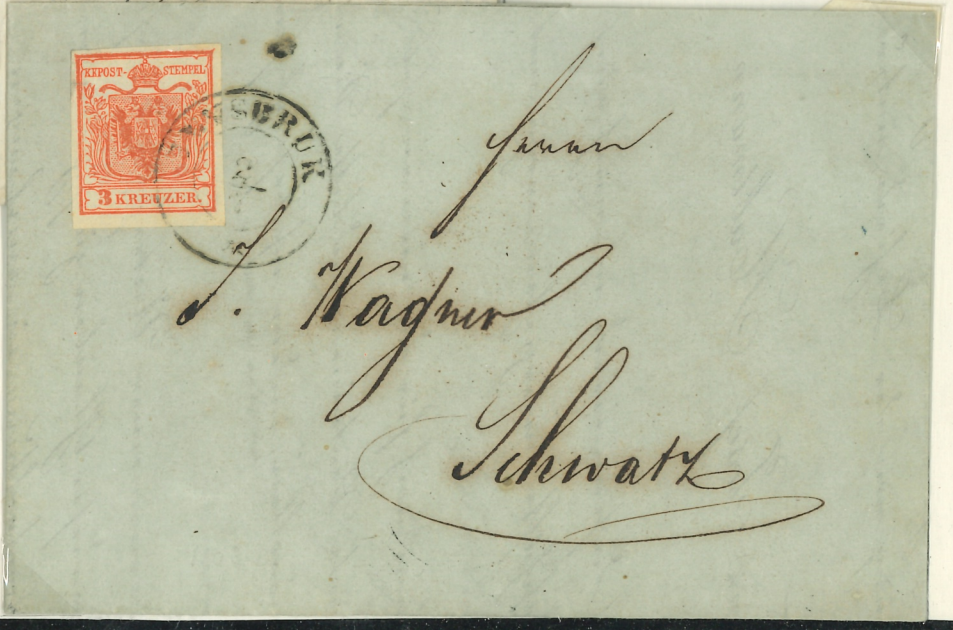 KKPOST-STEMPEL
3 KREUZER.
INNSBRUK
Herrn
J. Wagner
Schwatz